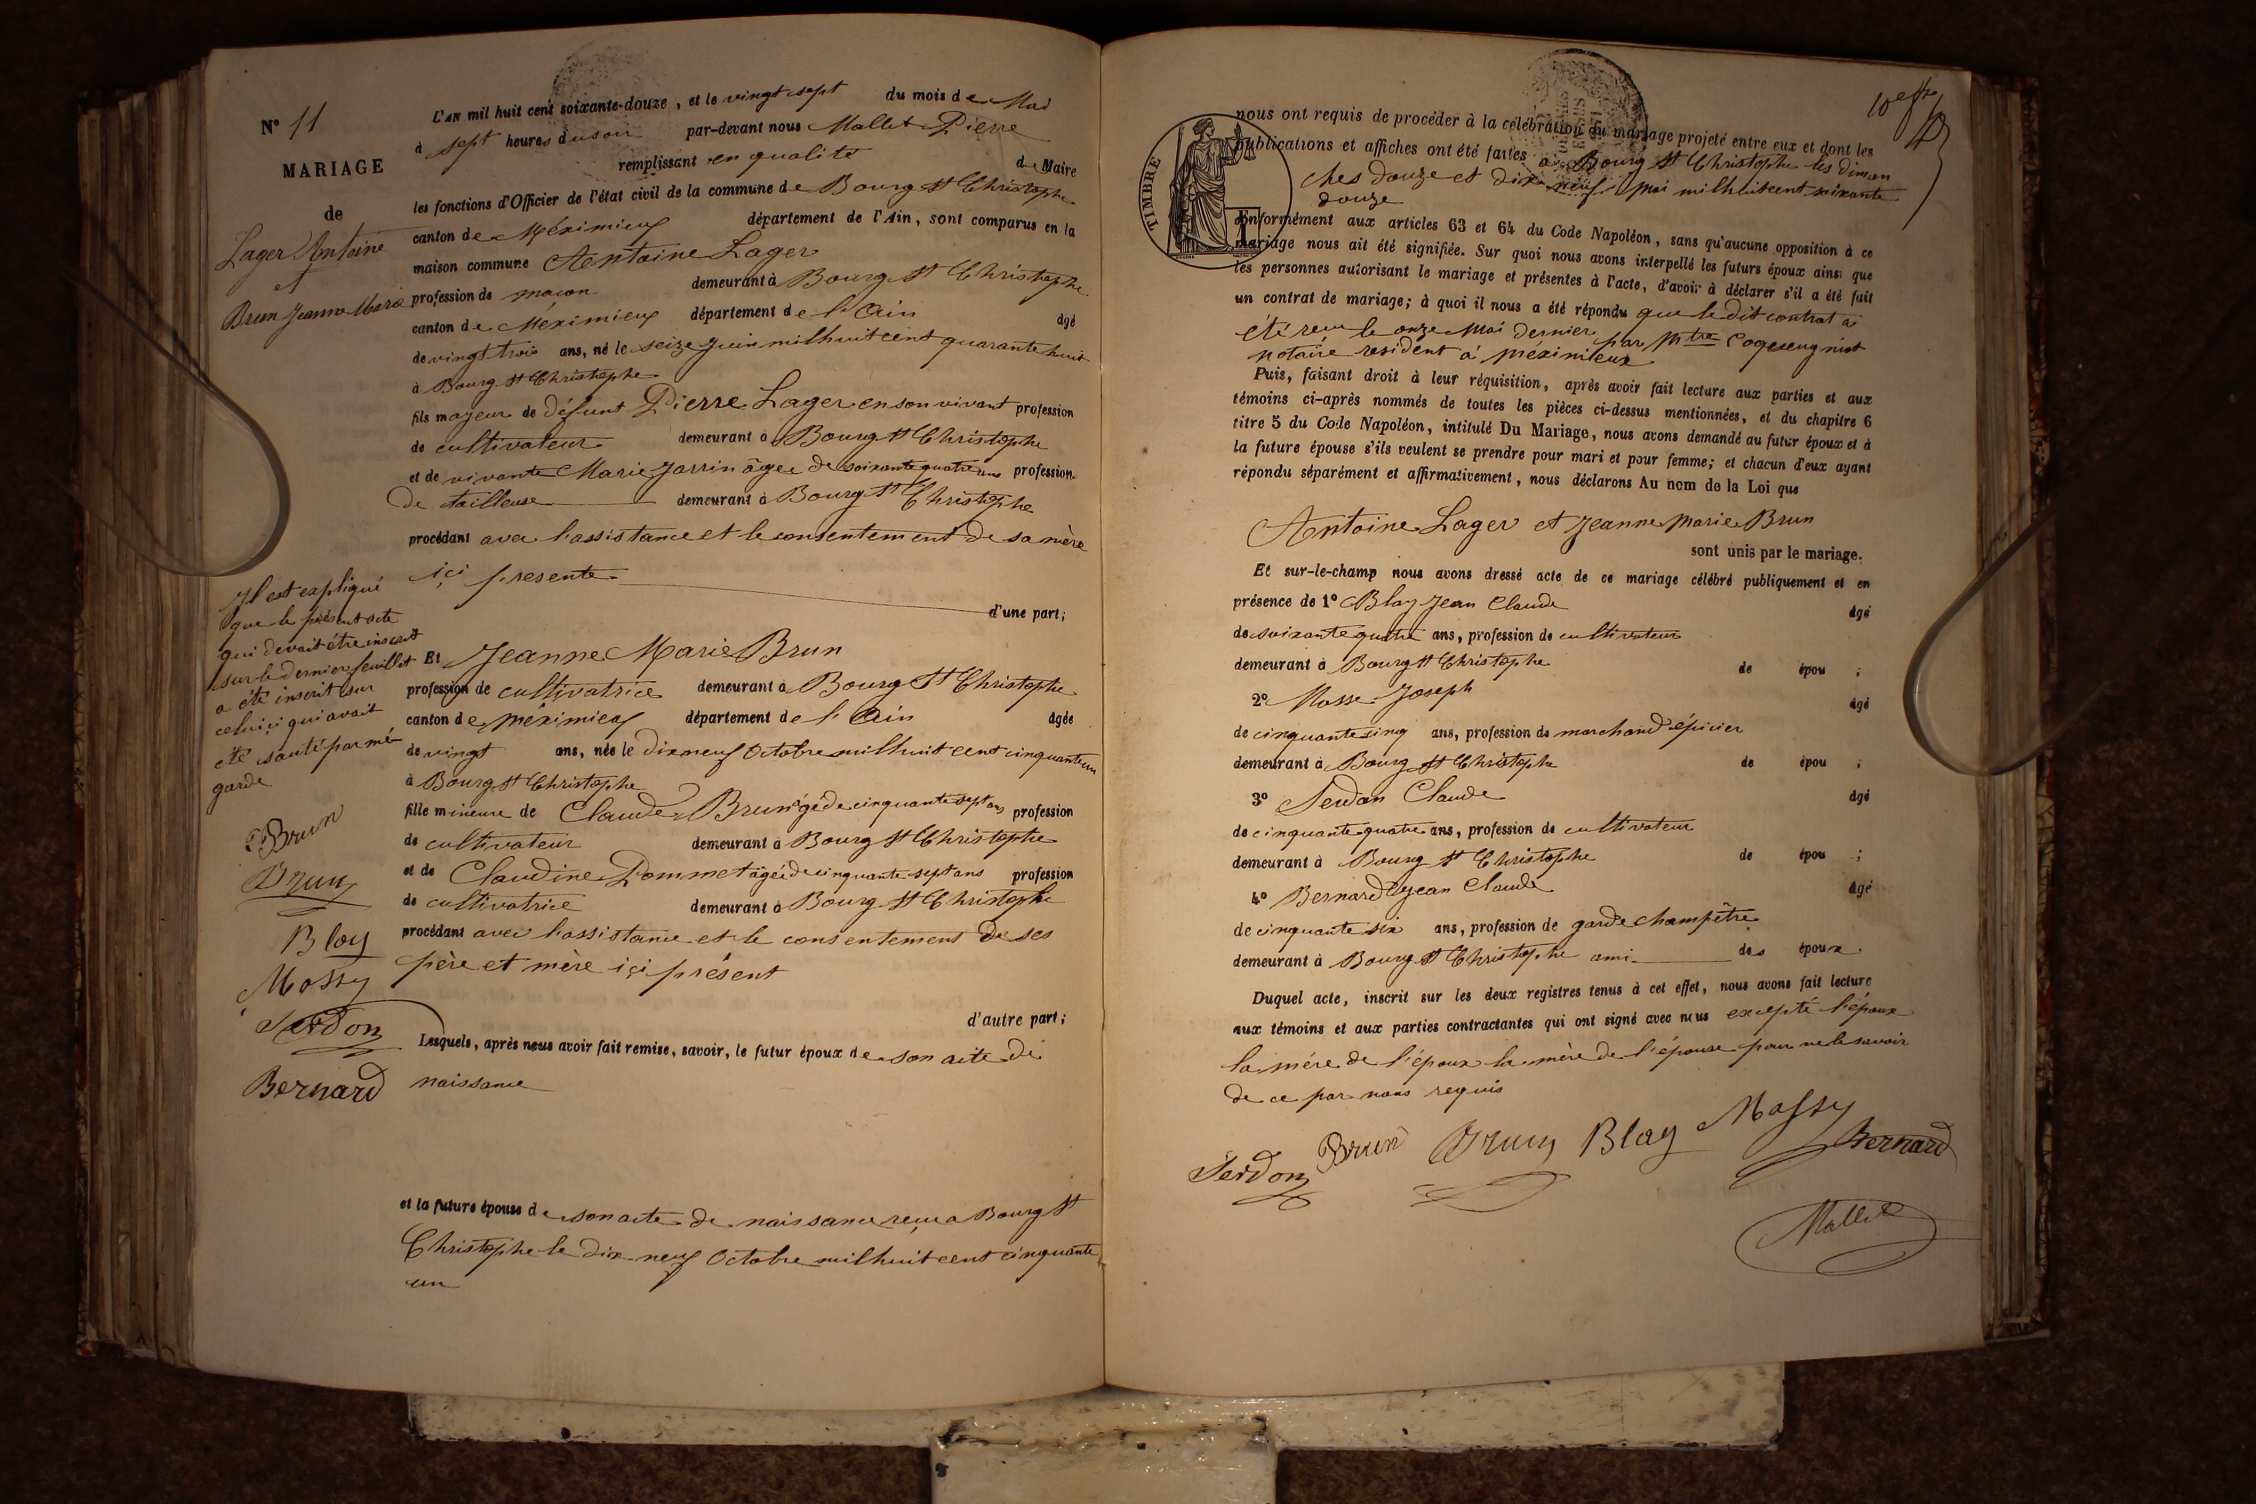 N° 11
MARIAGE
de
Lager Antoine
et
Brun Jeanne Marie
L'an mil huit cent soixante-douze, et le vingt sept du mois de Mai
à sept heures du soir par-devant nous Mallet Pierre
remplissant en qualité de Maire
les fonctions d'Officier de l'état civil de la commune de Bourg St Christophe
canton de Méximieux département de l'Ain, sont comparus en la
maison commune Antoine Lager
profession de maçon demeurant à Bourg St Christophe
canton de Méximieux département de l'Ain âgé
de vingt trois ans, né le seize Juin mil huit cent quarante huit
à Bourg St Christophe
fils majeur de défunt Pierre Lager en son vivant profession
de cultivateur demeurant à Bourg St Christophe
et de vivante Marie Jarrin âgée de soixante quatre ans profession
de tailleuse demeurant à Bourg St Christophe
procédant avec l'assistance et le consentement de sa mère
içi présente
d'une part;
Il est expliqué
que le présent acte
qui devait être inscrit
sur le dernier feuillet
a été inscrit sur
celui içi qui avait
été sauté par mé
garde
Brun
Brun
Blay
Mossy
Serdon
Bernard
Et Jeanne Marie Brun
profession de cultivatrice demeurant à Bourg St Christophe
canton de Méximieux département de l'Ain âgée
de vingt ans, née le dix neuf Octobre mil huit cent cinquante un
à Bourg St Christophe
fille mineure de Claude Brun âgé de cinquante sept ans profession
de cultivateur demeurant à Bourg St Christophe
et de Claudine Pommet âgée de cinquante sept ans profession
de cultivatrice demeurant à Bourg St Christophe
procédant avec l'assistance et le consentement de ses
père et mère içi présent
d'autre part;
Lesquels, après nous avoir fait remise, savoir, le futur époux de son acte de
naissance
et la future épouse de son acte de naissance reçu a Bourg St
Christophe le dix-neuf Octobre mil huit cent cinquante
un
TIMBRE
nous ont requis de procéder à la célébration du mariage projeté entre eux et dont les
publications et affiches ont été faites à Bourg St Christophe les diman
ches douze et dix neuf Mai mil huit cent soixante
douze
conformément aux articles 63 et 64 du Code Napoléon, sans qu'aucune opposition à ce
mariage nous ait été signifiée. Sur quoi nous avons interpellé les futurs époux ainsi que
les personnes autorisant le mariage et présentes à l'acte, d'avoir à déclarer s'il a été fait
un contrat de mariage; à quoi il nous a été répondu que le dit contrat a
été reçu le onze Mai dernier par Mtre
notaire résident à Méximieux
Puis, faisant droit à leur réquisition, après avoir fait lecture aux parties et aux
témoins ci-après nommés de toutes les pièces ci-dessus mentionnées, et du chapitre 6
titre 5 du Code Napoléon, intitulé Du Mariage, nous avons demandé au futur époux et à
la future épouse s'ils veulent se prendre pour mari et pour femme; et chacun d'eux ayant
répondu séparément et affirmativement, nous déclarons Au nom de la Loi que
Antoine Lager et Jeanne Marie Brun
sont unis par le mariage.
Et sur-le-champ nous avons dressé acte de ce mariage célébré publiquement et en
présence de 1° Blay Jean Claude âgé
de soixante quatre ans, profession de cultivateur
demeurant à Bourg St Christophe de épou ;
2° Mosse Joseph âgé
de cinquante cinq ans, profession de marchand épicier
demeurant à Bourg St Christophe de épou ;
3° Serdon Claude âgé
de cinquante quatre ans, profession de cultivateur
demeurant à Bourg St Christophe de épou ;
4° Bernard Jean Claude âgé
de cinquante six ans, profession de garde champêtre
demeurant à Bourg St Christophe ami des époux
Duquel acte, inscrit sur les deux registres tenus à cet effet, nous avons fait lecture
aux témoins et aux parties contractantes qui ont signé avec nous excepté l'époux
la mère de l'époux la mère de l'épouse pour ne le savoir
de ce par nous requis
Serdon Brun Brun Blay Mossy Bernard
Mallet